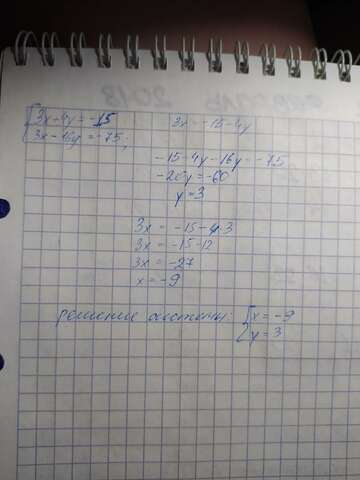 {3x-4y=-15
3x-16y=-75;
3x=-15-4y
-15-4y-16y=-75
-20y=-60
y=3
3x=-15-4·3
3x=-15-12
3x=-27
x=-9
решение системы: {x=-9
y=3